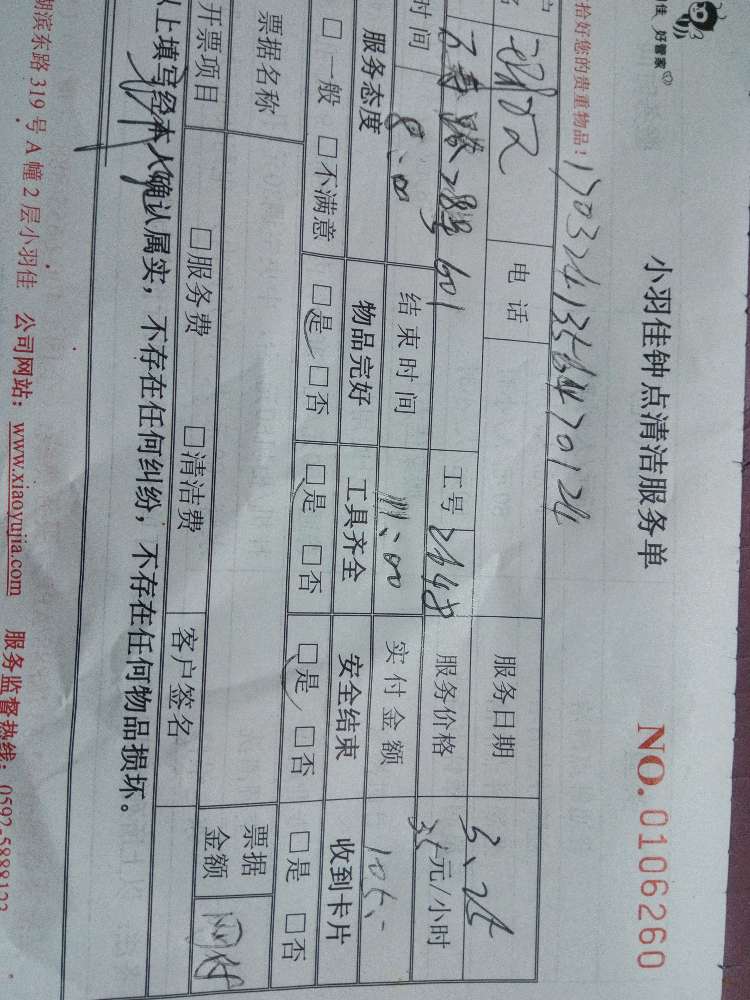 佳 好管家
小羽佳钟点清洁服务单
NO. 0106260
拾好您的贵重物品!
17032413564470124
电话
服务日期 3.25
路28号601
工号 2648
服务价格 35元/小时
时间 8:00
结束时间 11:00
实付金额 105.
服务态度 物品完好 工具齐全 安全结束 收到卡片
□一般 □不满意 □是 □否 □是 □否 □是 □否 □是 □否
票据名称
票据金额 网付
开票项目 □服务费 □清洁费
客户签名
上填写经本人确认属实,不存在任何纠纷,不存在任何物品损坏。
湖滨东路319号A幢2层小羽佳 公司网站:www.xiaoyujia.com 服务监督热线:0592-5888123